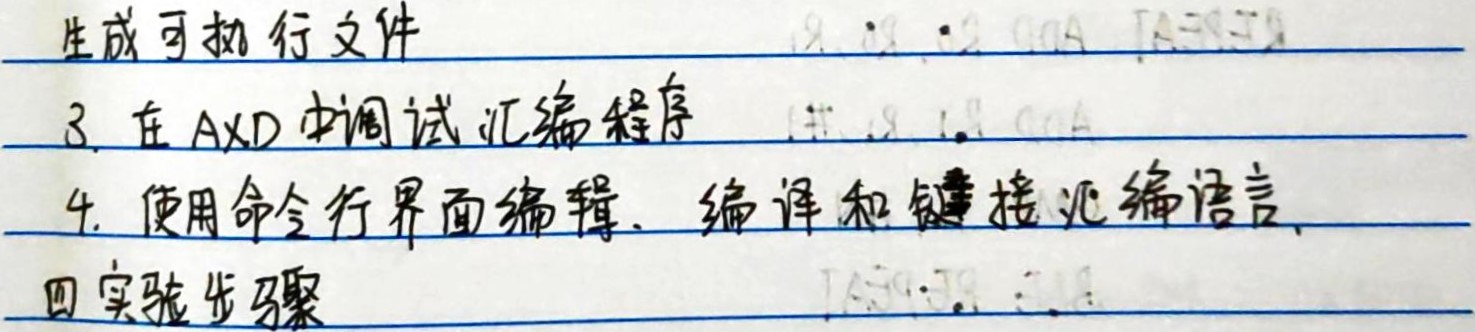 生成可执行文件
3. 在AXD中调试汇编程序
4. 使用命令行界面编辑、编译和链接汇编语言.
四实验步骤